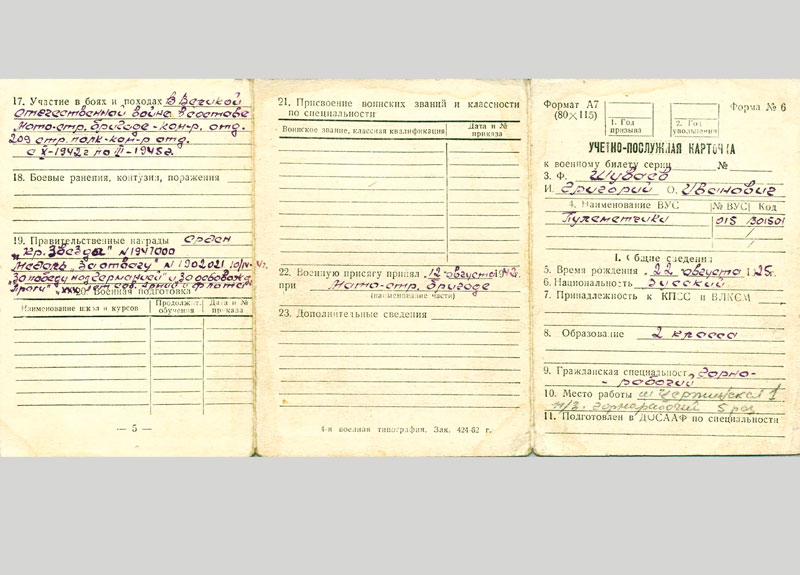 17. Участие в боях и походах В Великой
Отечественной войне В составе
Мото-стр. бригаде-кон-р. отд.
209 стр. полк-кон-р отд.
с X-1942г по III-1945г.
18. Боевые ранения, контузия, поражения
19. Правительственные награды Орден
"Кр. Звезды" N 1947000
Медаль "За отвагу" N 1902021
За победу над Германией" и За освобожд.
Праги" "XXX лет сов. армии и флота"
20. Военная подготовка
Наименование школ и курсов
Продолжит. обучения
Дата и № приказа
— 5 —
21. Присвоение воинских званий и классности
по специальности
Воинское звание, классная квалификация
Дата и № приказа
22. Военную присягу принял 12 августа 1942.
при Мото-стр. бригаде
(наименование части)
23. Дополнительные сведения
4-я военная типография. Зак. 424-62 г.
Формат А7
(80×115)
1. Год призыва
2. Год увольнения
Форма № 6
УЧЕТНО-ПОСЛУЖНАЯ КАРТОЧКА
к военному билету серии №
3. Ф. Шуваев
И. Григорий О. Иванович
4. Наименование ВУС № ВУС Код
Пулеметчики 015 301501
I. Общие сведения
5. Время рождения 22 августа 1925г.
6. Национальность Русский
7. Принадлежность к КПСС и ВЛКСМ
8. Образование 2 класса
9. Гражданская специальност горно-
-рабочий
10. Место работы ш. Чертинская 1
п/з. горнорабочий 5 раз
11. Подготовлен в ДОСААФ по специальности